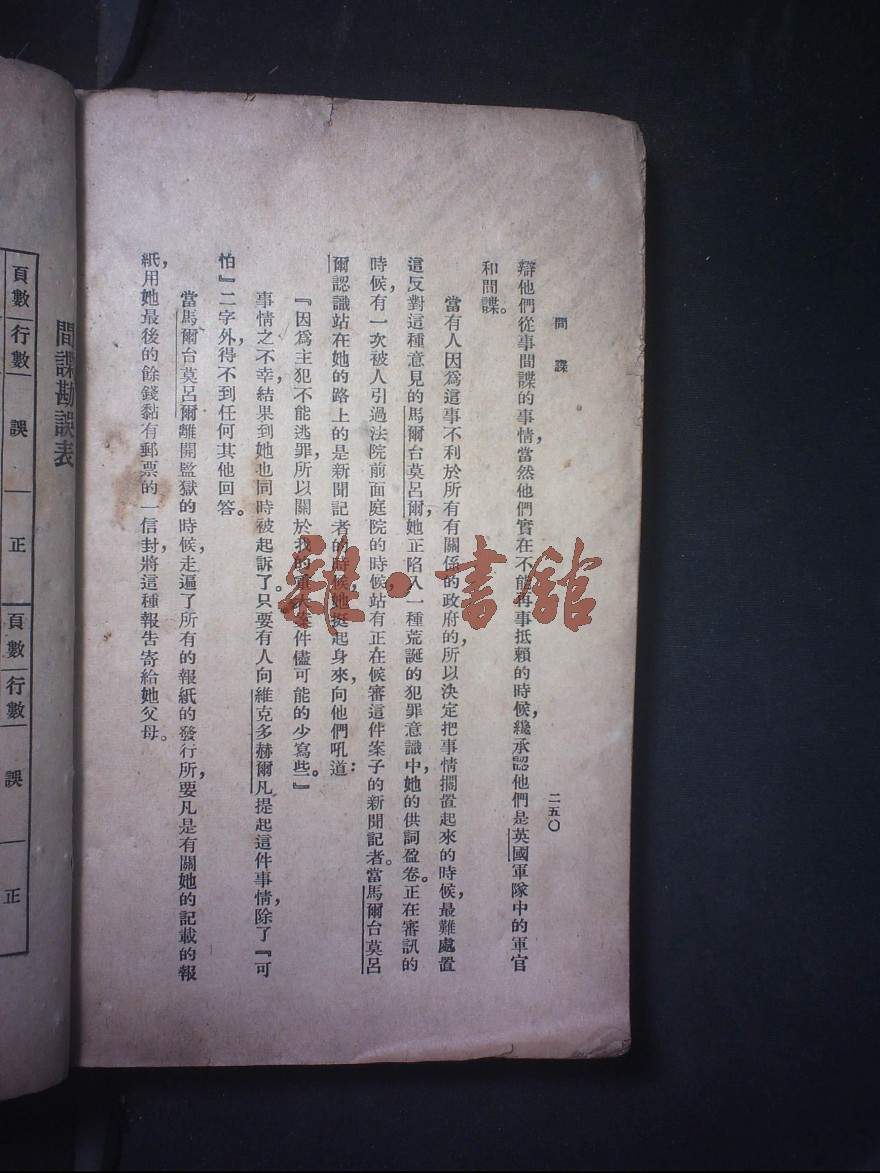 間諜
二五〇
辯他們從事間諜的事情，當然他們實在不能再事抵賴的時候，纔承認他們是英國軍隊中的軍官
和間諜。
當有人因爲這事不利於所有有關係的政府的，所以決定把事情擱置起來的時候，最難處置
這反對這種意見的馬爾台莫呂爾，她正陷入一種荒誕的犯罪意識中，她的供詞盈卷。正在審訊的
時候，有一次被人引過法院前面庭院的時候，站有正在候審這件案子的新聞記者。當馬爾台莫呂
爾認識站在她的路上的是新聞記者的時候，她挺起身來，向他們吼道：
『因爲主犯不能逃罪，所以關於我的重大案件儘可能的少寫些。』
事情之不幸結果到她也同時被起訴了。只要有人向維克多赫爾凡提起這件事情，除了『可
怕』二字外，得不到任何其他回答。
當馬爾台莫呂爾離開監獄的時候，走遍了所有的報紙的發行所，要凡是有關她的記載的報
紙，用她最後的餘錢黏有郵票的一信封，將這種報告寄給她父母。
間諜勘誤表
頁數 行數 誤 正 頁數 行數 誤 正
雜·書館